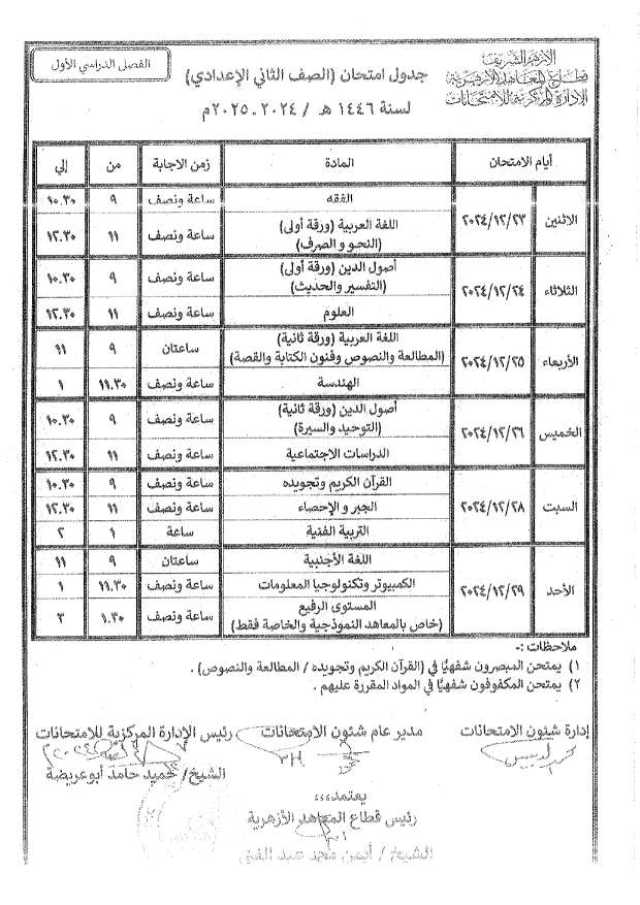 الأزهر الشريف
قطاع المعاهد الأزهرية
الإدارة المركزية للامتحانات
جدول امتحان (الصف الثاني الإعدادي)
لسنة ١٤٤٦ هـ / ٢٠٢٤ - ٢٠٢٥م
الفصل الدراسي الأول
أيام الامتحان المادة زمن الاجابة من إلي
الاثنين ٢٠٢٤/١٢/٢٣ الفقه ساعة ونصف ٩ ١٠.٣٠
اللغة العربية (ورقة أولى) ساعة ونصف ١١ ١٢.٣٠
(النحو و الصرف)
الثلاثاء ٢٠٢٤/١٢/٢٤ أصول الدين (ورقة أولى) ساعة ونصف ٩ ١٠.٣٠
(التفسير والحديث)
العلوم ساعة ونصف ١١ ١٢.٣٠
الأربعاء ٢٠٢٤/١٢/٢٥ اللغة العربية (ورقة ثانية) ساعتان ٩ ١١
(المطالعة والنصوص وفنون الكتابة والقصة)
الهندسة ساعة ونصف ١١.٣٠ ١
الخميس ٢٠٢٤/١٢/٢٦ أصول الدين (ورقة ثانية) ساعة ونصف ٩ ١٠.٣٠
(التوحيد والسيرة)
الدراسات الاجتماعية ساعة ونصف ١١ ١٢.٣٠
السبت ٢٠٢٤/١٢/٢٨ القرآن الكريم وتجويده ساعة ونصف ٩ ١٠.٣٠
الجبر و الإحصاء ساعة ونصف ١١ ١٢.٣٠
التربية الفنية ساعة ١ ٢
الأحد ٢٠٢٤/١٢/٢٩ اللغة الأجنبية ساعتان ٩ ١١
الكمبيوتر وتكنولوجيا المعلومات ساعة ونصف ١١.٣٠ ١
المستوى الرفيع ساعة ونصف ١.٣٠ ٣
(خاص بالمعاهد النموذجية والخاصة فقط)
ملاحظات :-
١) يمتحن المبصرون شفهيًا في (القرآن الكريم وتجويده / المطالعة والنصوص) .
٢) يمتحن المكفوفون شفهيًا في المواد المقررة عليهم .
إدارة شئون الامتحانات مدير عام شئون الامتحانات رئيس الإدارة المركزية للامتحانات
الشيخ/ حميد حامد أبوعريضة
يعتمد،،،
رئيس قطاع المعاهد الأزهرية
الشيخ / أيمن محمد عبد الغني